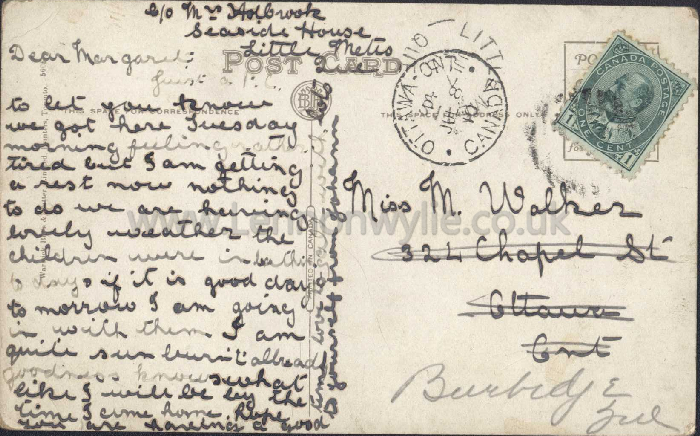 c/o Mrs Holbrook
Seaside House
Little Metis
Que
Dear Margaret:
Just a P.C.
to let you know
we got here Tuesday
morning feeling rather
tired but I am getting
a rest now nothing
to do we are having
lovely weather the
children were in bathing
to day & if it is good day
to morrow I am going
in with them I am
quite sunburnt already
goodness knows what
like I will be by the
time I come home Hope
you are having a good
time love to
& yourself from
POST CARD
THIS SPACE FOR CORRESPONDENCE
THIS SPACE FOR ADDRESS ONLY
PRINTED IN CANADA
OTTAWA · ONT.
CANADA POSTAGE
1 ONE CENT 1
Miss M. Walker
324 Chapel St
Ottawa
Ont
Burbidge
Que
www.LennonWylie.co.uk